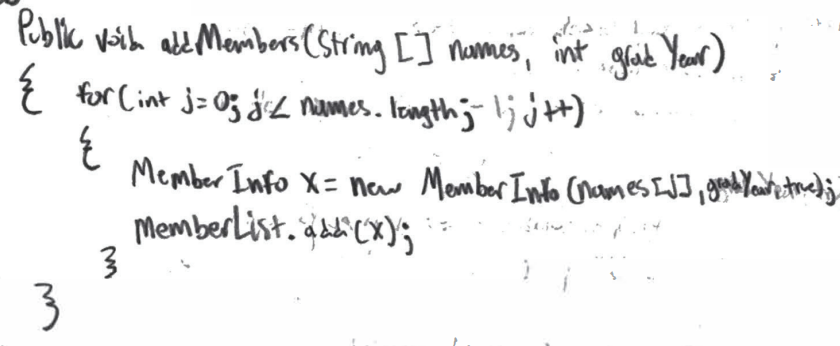 Public void addMembers(String [] names, int gradYear)
{ for(int j=0; j< names.length; j++)
{
MemberInfo x = new MemberInfo(names[j], gradYear, true);
memberList.add(x);
}
}